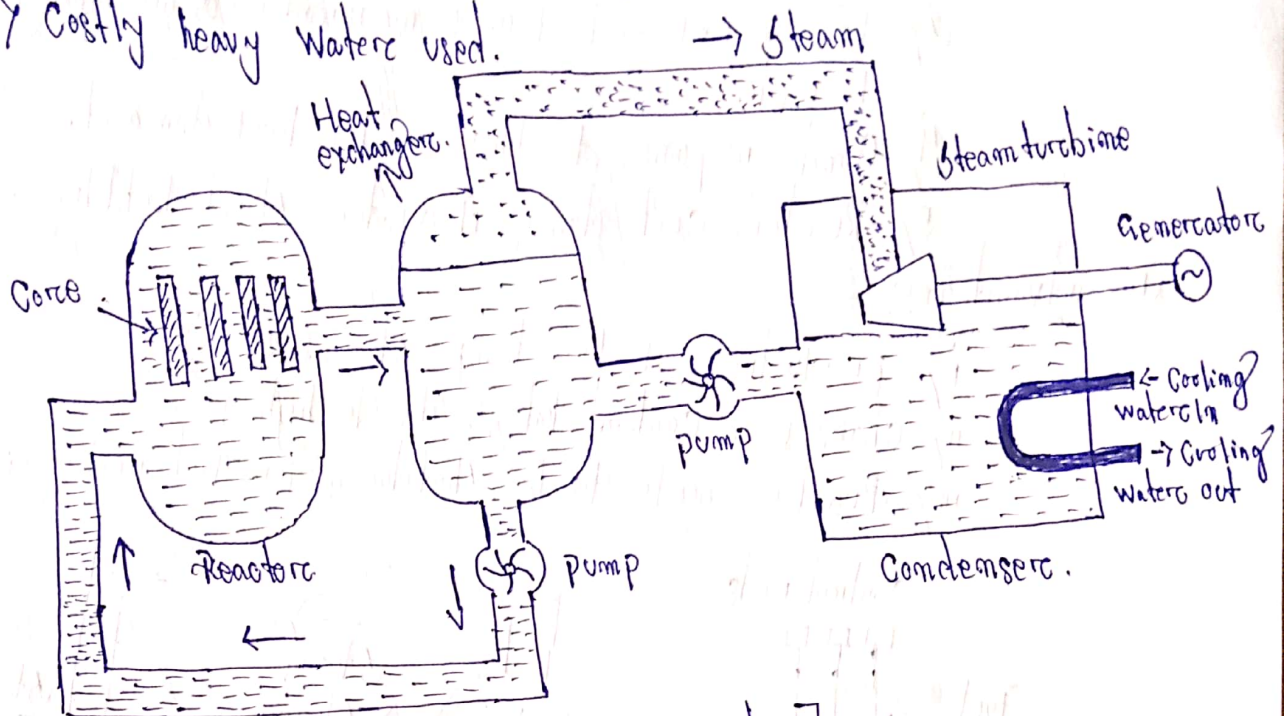 Costly heavy Water used.
→ Steam
Heat
exchanger.
Steam turbine
Generator
~
Core
← Cooling
water In
→ Cooling
water out
pump
Reactor
pump
Condenser.